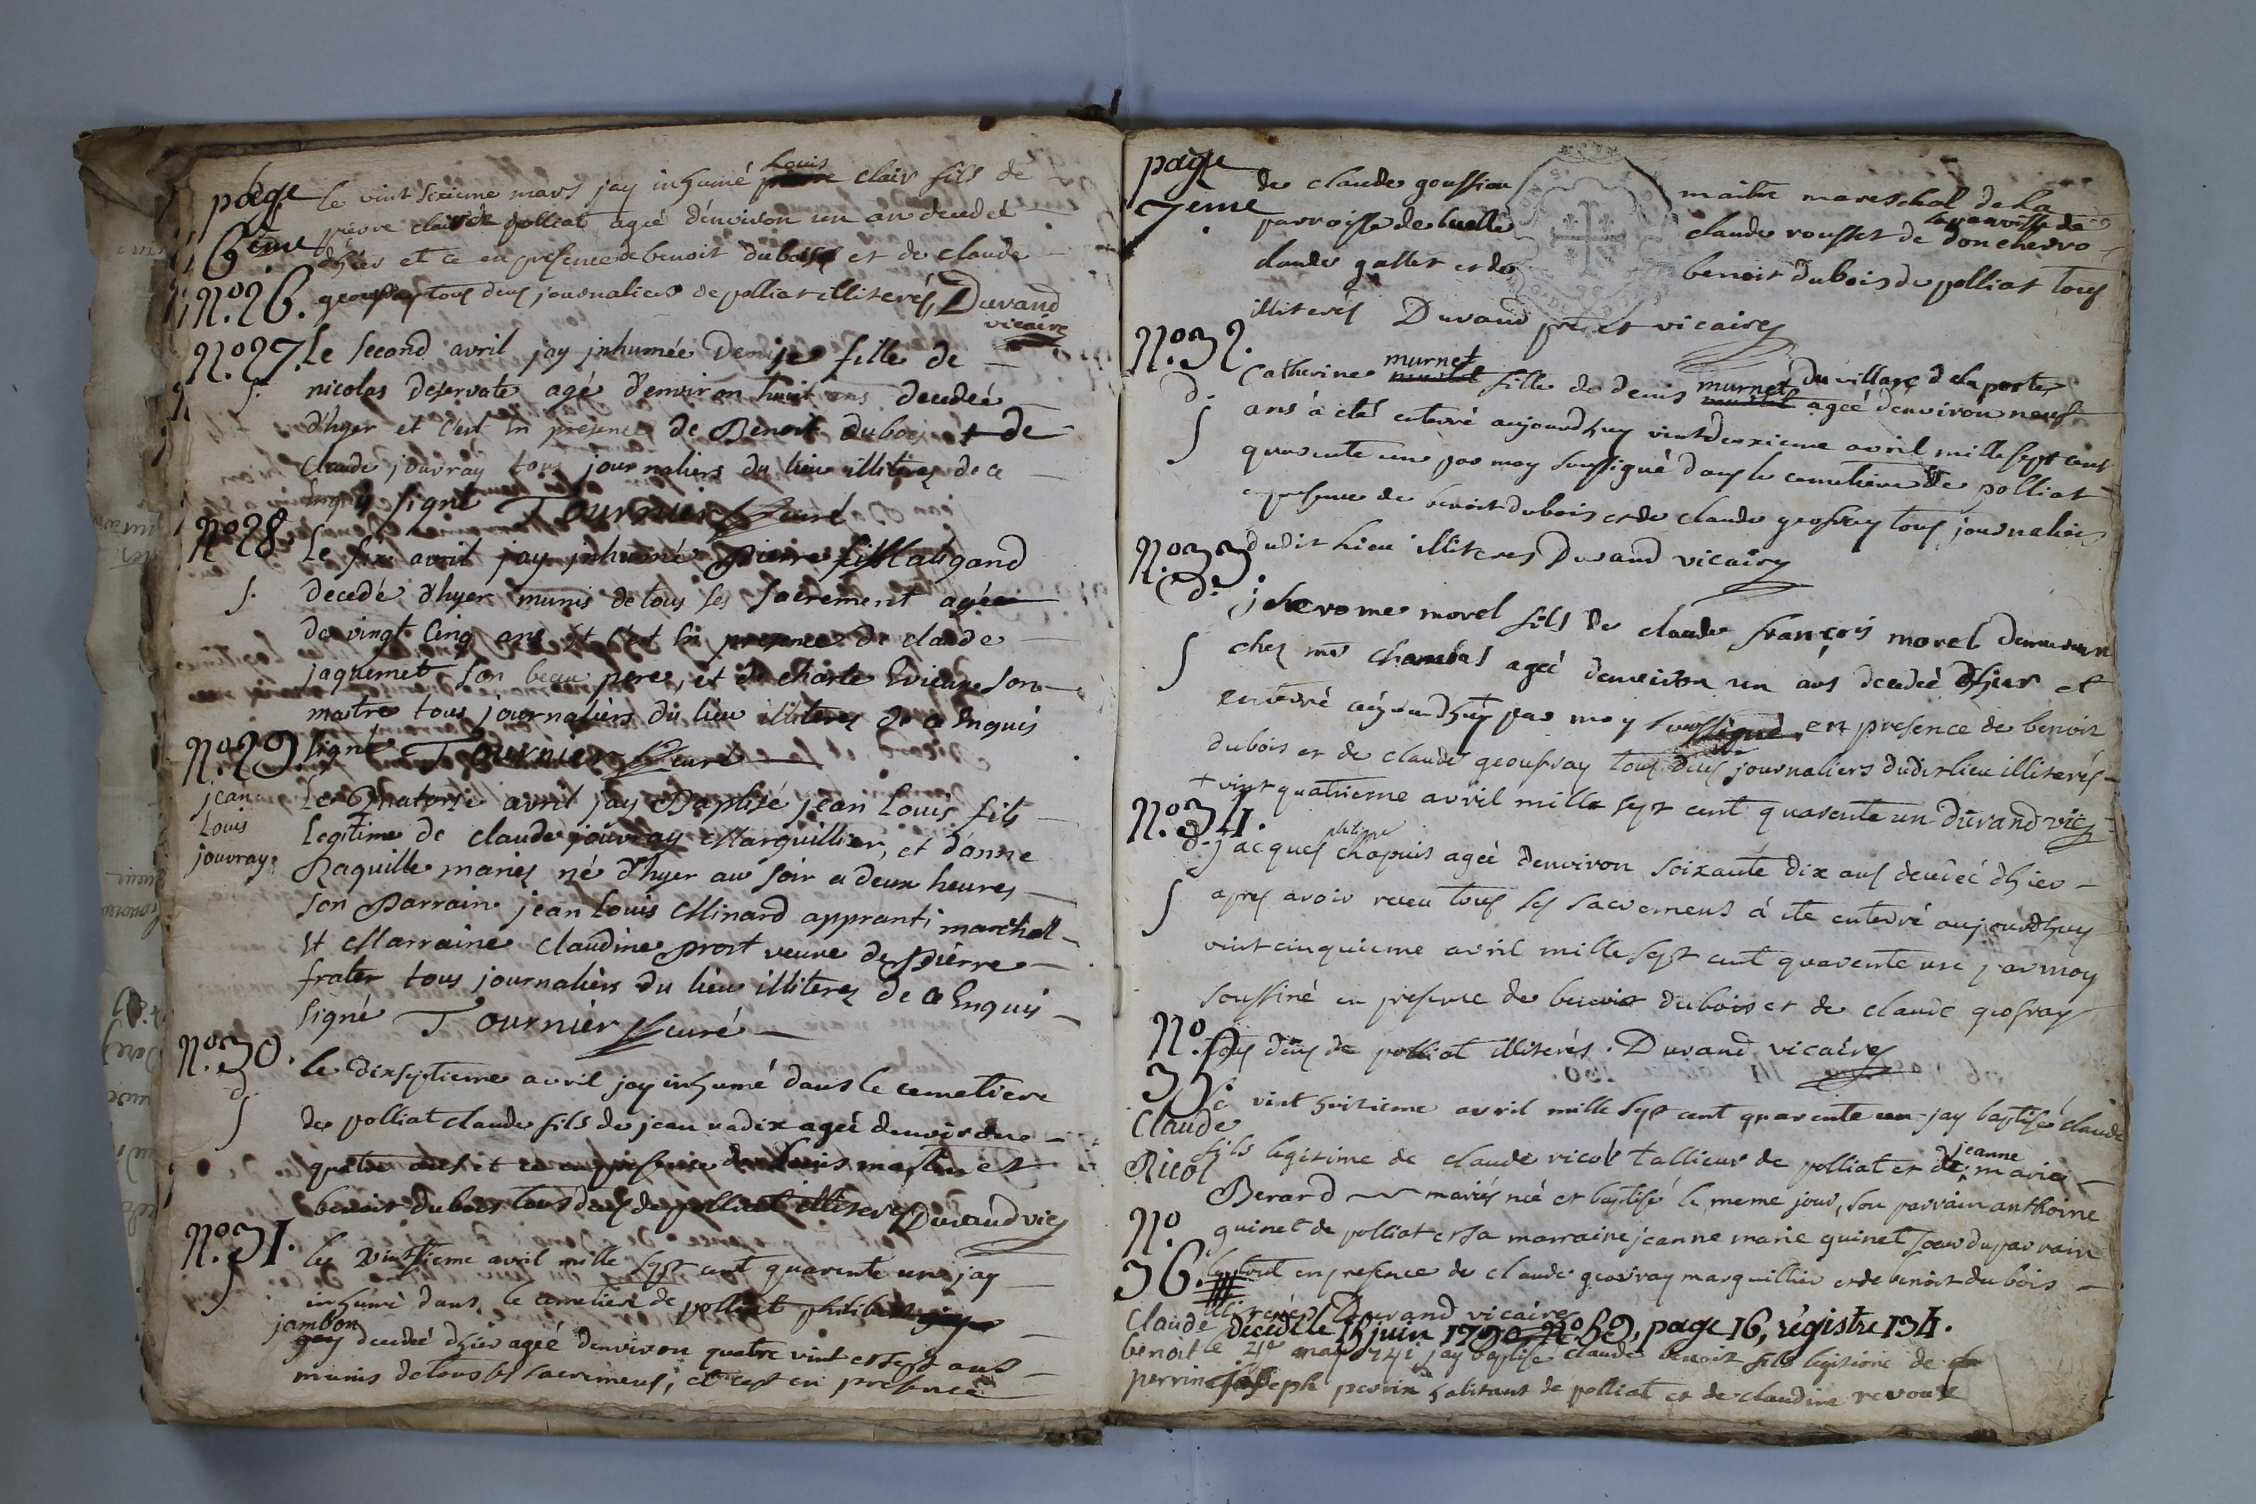 page
6ème
le vint sixieme mars jay inhumé Louis clair fils de
pierre clair de polliat ageé denviron un an decedeé
dhier et ce en presence de benoit dubois et de claude
N.º 26. geoufray tous deus journaliers de polliat illiterés, Durand
vicaire
N.º 27. Le second avril jay inhumée Denise fille de
S. nicolas deservate agé denviron huit ans decedée
d'hyer et c'est en presence de Benoit duboi + de
Claude jouvray tous journaliers du lieu illiteres de ce
Enquis signé Tournier curé
N.º 28. Le six avril jay inhumé Pierre Maugand
S. decedé d'hyer munis de tous ses sacrement agée
de vingt Cinq ans et c'est en presence de claude
jaquemet son beau pere, et de charle Evieux son
maitre tous journaliers du lieu illiteres de ce Enquis
N.º 29. signé Tournier curé
jean
Louis
jouvray
Le Quatorse avril jay Baptisé jean Louis fils
Legitime de claude jouvray Marguillier, et d'anne
Paquille mariés né d'hyer au soir a deux heures
son Parrain jean Louis Minard appranti marechal
Et Marraine Claudine prost veuve de Pierre
frater tous journaliers du lieu illiteres de ce Enquis
signé Tournier curé
N.º 30. le dixseptieme avril jay inhumé dans le cemetiere
d.
S
de polliat claude fils de jean vadix ageé denviron
quatre ans et ce en presence de Louis martin et
benoit dubois tous deus de polliat illiteres Durand vic
N.º 31. le vintieme avril mille sept cent quarente un jay
S
inhumé dans le cemetiere de polliat philibert
jambon decedé dhier ageé denviron quatre vint et sept ans
munis de tous ses sacremens, et c'est en presence
page
7eme
de claude goussion maitre mareschal de la
parroisse de buelle claude rousset de la parroisse de doncherro
claude gallet et de benoit dubois de polliat tous
illiterés Durand prê et vicaire
N.º 32.
d.
S
Catherine murnet fille de denis murnet du village de la poste
ageé denviron neuf
ans à eté enterré aujourdhuy vintdeuxieme avril mille sept cent
quarente un par moy soussigné dans le cemetiere de polliat
en presence de benoit dubois et de claude geofray tous journaliers
N.º 33. dudit lieu illiteres Durand vicaire
d.
S
jherome morel fils de claude françois morel demeurant
chez mr chambas ageé denviron un ans decedeé dhier et
enterré aujourdhuy + par moy soussigné, en presence de benoit
dubois et de claude geoufray tous deus journaliers dudit lieu illiterés
+ vint quatrieme avril mille sept cent quarente un Durand vic
N.º 34.
d.
S
jacques philippe chapuis ageé denviron soixante dix ans decedeé dhier
apres avoir receu tous ses sacremens à ete enterré aujourdhuy
vint cinquieme avril mille sept cent quarente un par moy
soussiné en presence de benoit dubois et de claude geofray
tous deus de polliat illiterés. Durand vicaire
N.º
35.
Claude
Ricol
le vint huitieme avril mille sept cent quarente un jay baptisé claude
fils legitime de claude ricol tallieur de polliat et de jeanne marie
Berard mariés né et baptisé le meme jour, son parrain anthoine
quinet de polliat et sa marraine jeanne marie quinet soeur du parrain
le tout en presence de claude geovray marguillier et de benoit dubois
illiterés Durand vicaire
N.º
36.
Claude
benoit
perrin
décédé le 15 juin 1790, N.º 59, page 16, régistre 134.
le 4e may 1741 jay baptisé claude benoit fils legitime de
joseph perrin habitant de polliat et de claudine revoux